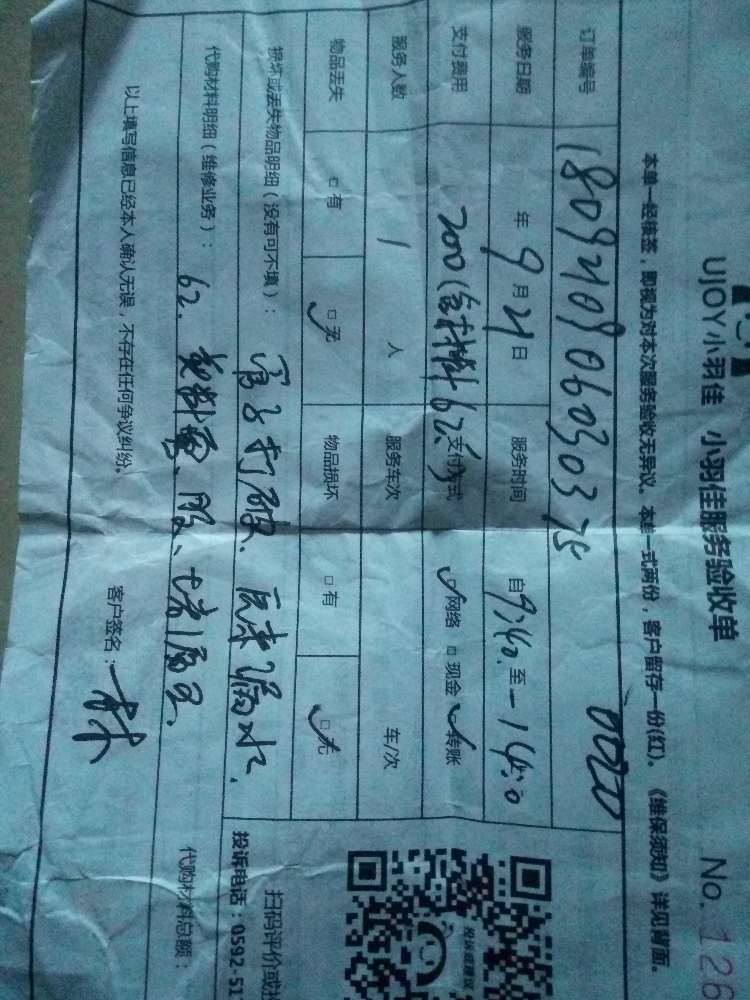 UJOY小羽佳 小羽佳服务验收单
No. 126
本单一经核签,即视为对本次服务验收无异议。本单一式两份,客户留存一份(红)。《维保须知》详见背面。
订单编号 180921090603037
服务日期 年 9月21日 服务时间 自9:40至-14:0
支付费用 200(含材料62) 支付方式 ✓网络 □现金 ✓转账
服务人数 1 人 服务车次 车/次
物品丢失 □有 ☑无 物品损坏 □有 ☑无
损坏或丢失物品明细(没有可不填): 管子打破、 漏水,
扫码评价或
投诉电话:0592-51
代购材料明细(维修业务): 62.
代购材料总额:
以上填写信息已经本人确认无误,不存在任何争议纠纷。 客户签名: 林